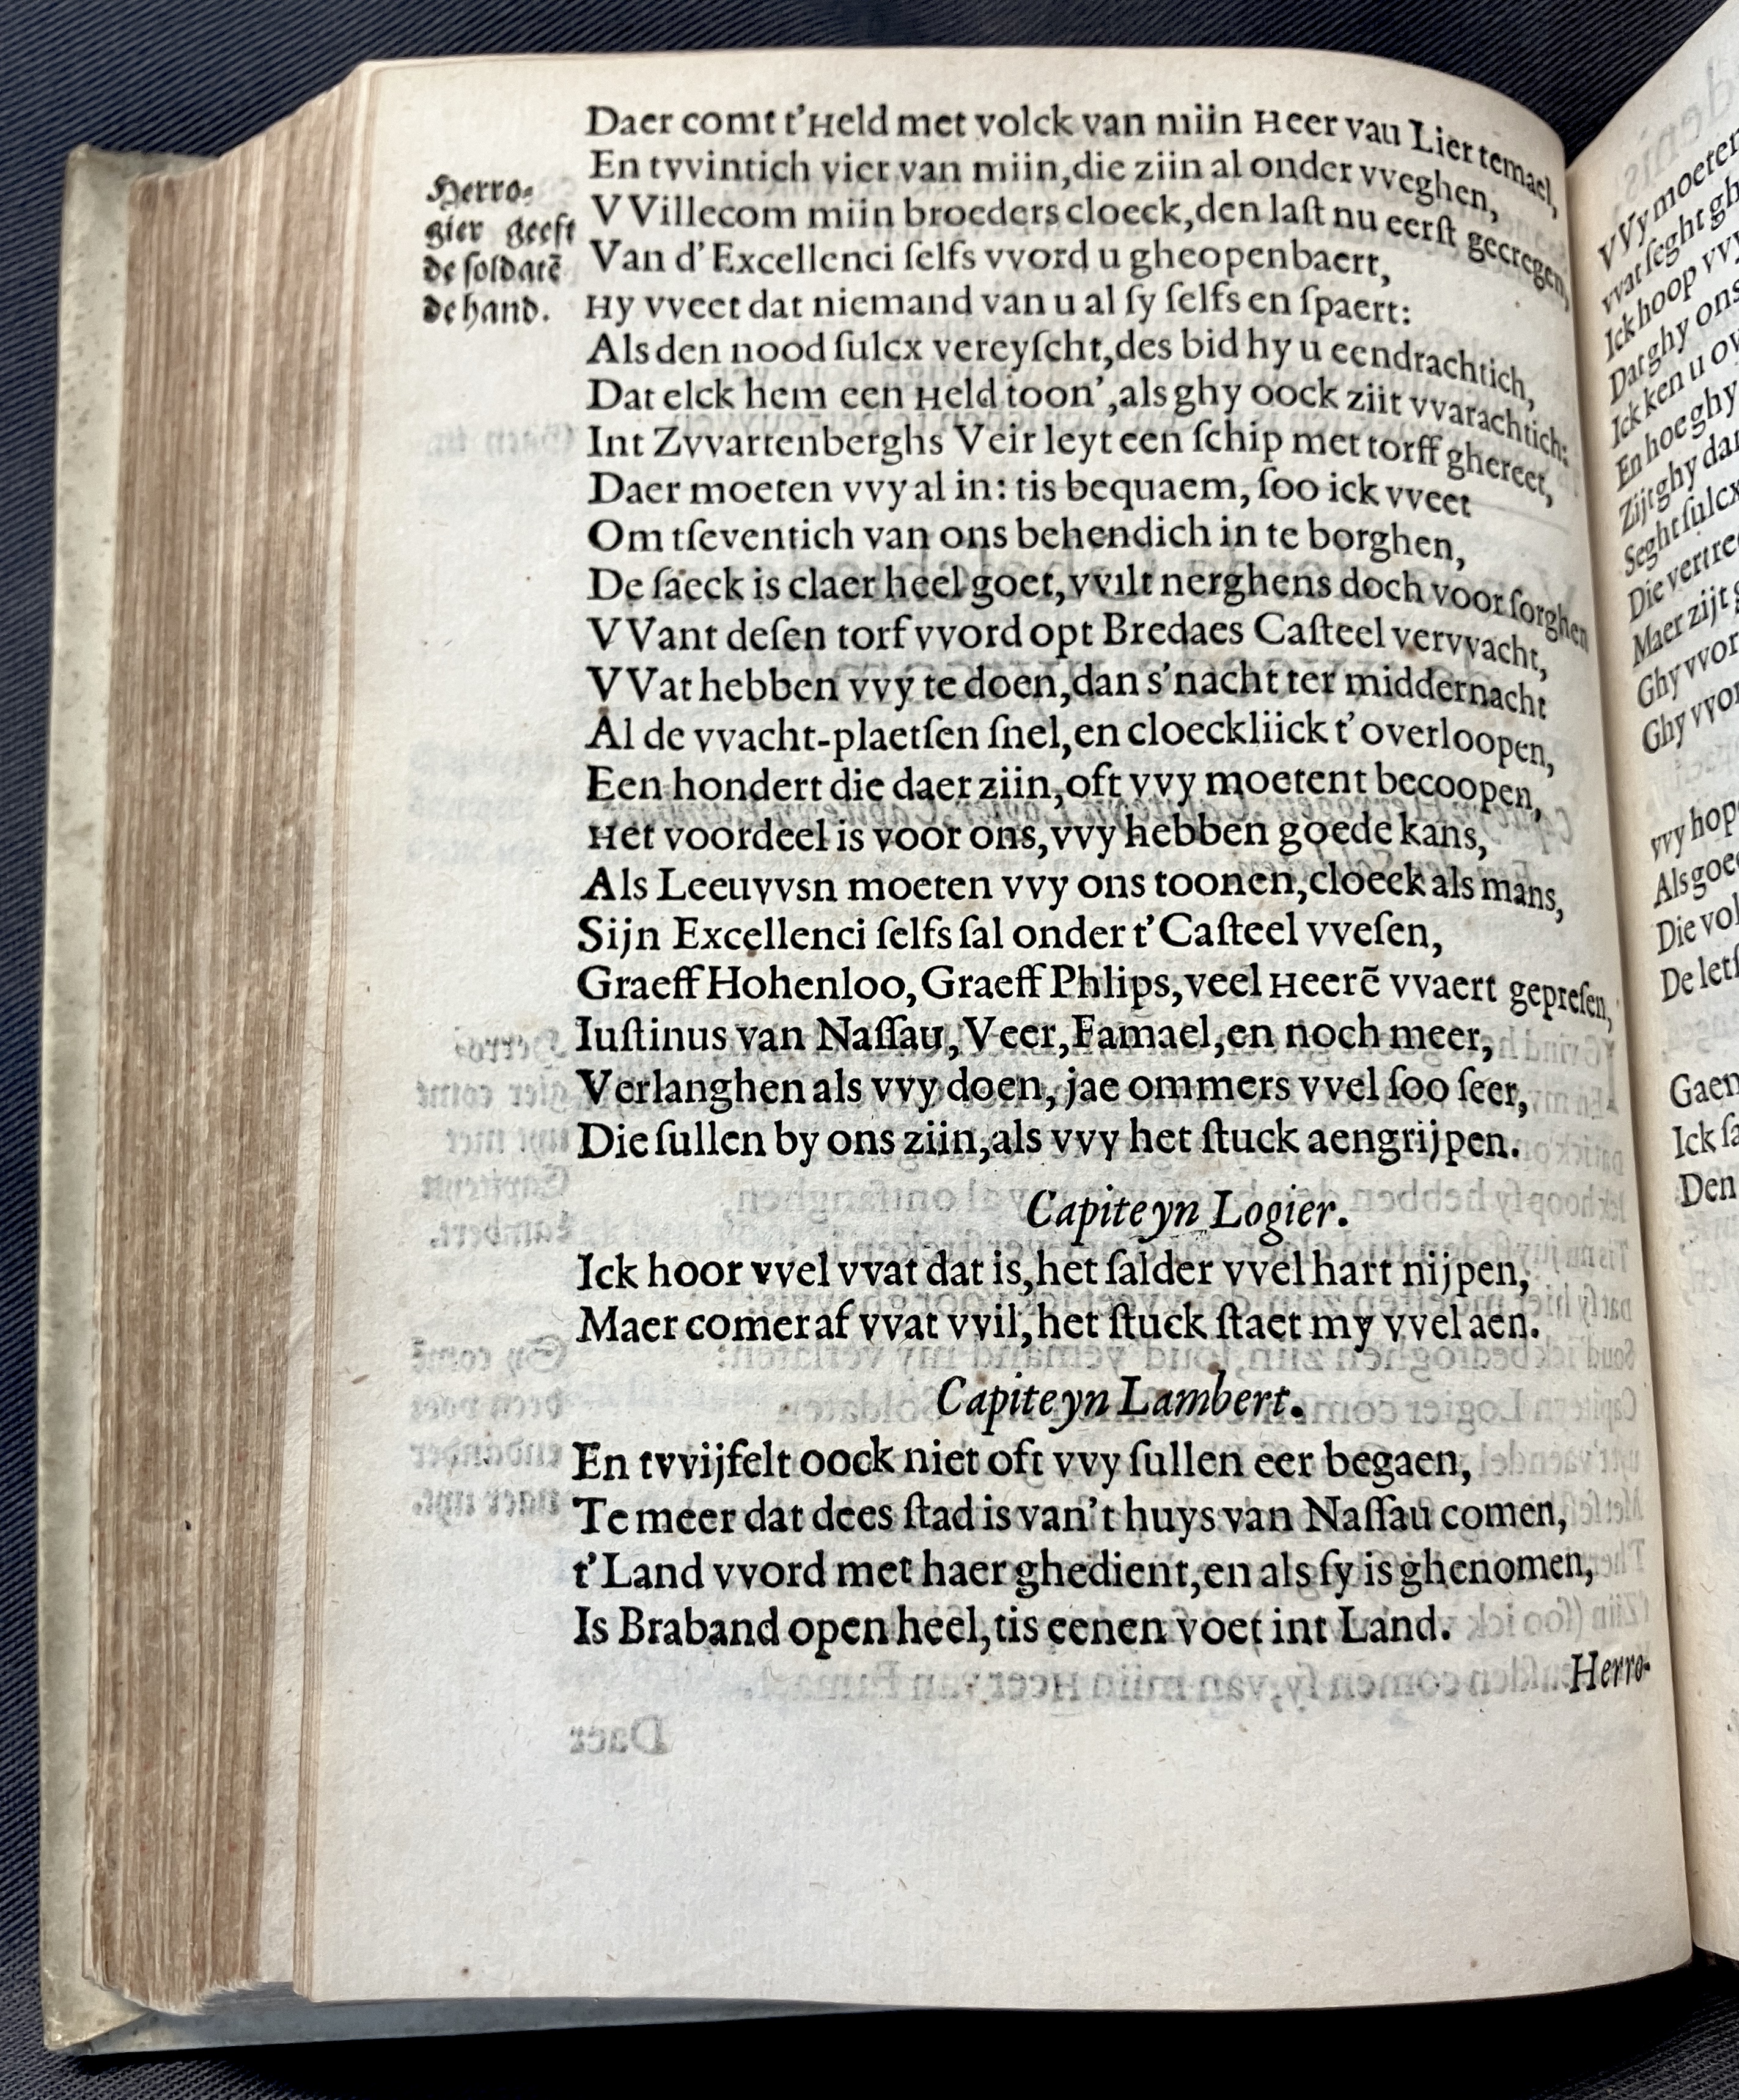 Daer comt t'Held met volck van miin Heer vau Lier temael,
En tvvintich vier van miin, die ziin al onder vveghen,
VVillecom miin broeders cloeck, den laſt nu eerſt gecregen,
Van d'Excellenci ſelfs vvord u gheopenbaert,
Hy vveet dat niemand van u al ſy ſelfs en ſpaert:
Als den nood ſulcx vereyſcht, des bid hy u eendrachtich,
Dat elck hem een Held toon', als ghy oock ziit vvarachtich:
Int Zvvartenberghs Veir leyt een ſchip met torff ghereet,
Daer moeten vvy al in: tis bequaem, ſoo ick vveet
Om tſeventich van ons behendich in te borghen,
De ſaeck is claer heel goet, vvilt nerghens doch voor ſorghen
VVant deſen torf vvord opt Bredaes Caſteel vervvacht,
VVat hebben vvy te doen, dan s'nacht ter middernacht
Al de vvacht-plaetſen ſnel, en cloeckliick t'overloopen,
Een hondert die daer ziin, oft vvy moetent becoopen,
Het voordeel is voor ons, vvy hebben goede kans,
Als Leeuvvsn moeten vvy ons toonen, cloeck als mans,
Sijn Excellenci ſelfs ſal onder t'Caſteel vveſen,
Graeff Hohenloo, Graeff Phlips, veel Heerē vvaert gepreſen,
Iuſtinus van Naſſau, Veer, Famael, en noch meer,
Verlanghen als vvy doen, jae ommers vvel ſoo ſeer,
Die ſullen by ons ziin, als vvy het ſtuck aengrijpen.
Capiteyn Logier.
Ick hoor vvel vvat dat is, het ſalder vvel hart nijpen,
Maer comer af vvat vvil, het ſtuck ſtaet my vvel aen.
Capiteyn Lambert.
En tvvijfelt oock niet oft vvy ſullen eer begaen,
Te meer dat dees ſtad is van't huys van Naſſau comen,
t'Land vvord met haer ghedient, en als ſy is ghenomen,
Is Braband open heel, tis eenen voet int Land.
Herro-
Herro-
gier geeft
de ſoldatē
de hand.
VVy moeten
vvat ſeght gh
Ick hoop vvy
Dat ghy ons
Ick ken u ov
En hoe ghy
Zijt ghy dan
Seght ſulcx
Die vertre
Maer zijt g
Ghy vvor
Ghy vvor
vvy hop
Als goe
Die vol
De letſ
Gaen
Ick ſa
Den